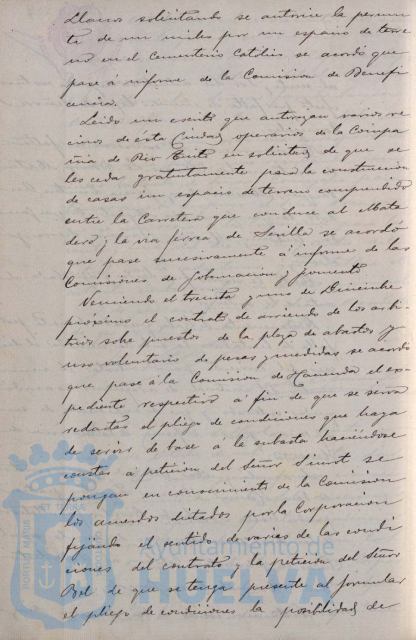 Llanos solicitando se autorice la permu
ta de un nicho por un espacio de terre
no en el cementerio Católico se acordó que
pase á informe de la Comision de Benefi
cencia.
Leido un escrito que autorizan varios ve
cinos de ésta Ciudad operarios de la Compa
ñia de Rio Tinto en solicitud de que se
les ceda gratuitamente para la construccion
de casas un espacio de terreno comprendido
entre la Carretera que conduce al Mata
dero y la via ferrea de Sevilla se acordó
que pase sucesivamente á informe de las
Comisiones de Gobernacion y fomento
Venciendo el treinta y uno de Diciembre
próximo el contrato de arriendo de los arbi
trios sobre puestos de la plaza de abastos y
uso voluntario de pesas y medidas se acordó
que pase á la Comision de Hacienda el ex
pediente respectivo á fin de que se sirva
redactar el pliego de condiciones que haya
de servir de base á la subasta haciéndose
constar á peticion del Señor se
pongan en conocimiento de la Comision
los acuerdos dictados por la Corporacion
fijando el sentido de varias de las condi
ciones del contrato y la peticion del Señor
Bel de que se tenga presente al formular
el pliego de condiciones la posibilidad de
Ayuntamiento de
HUELVA